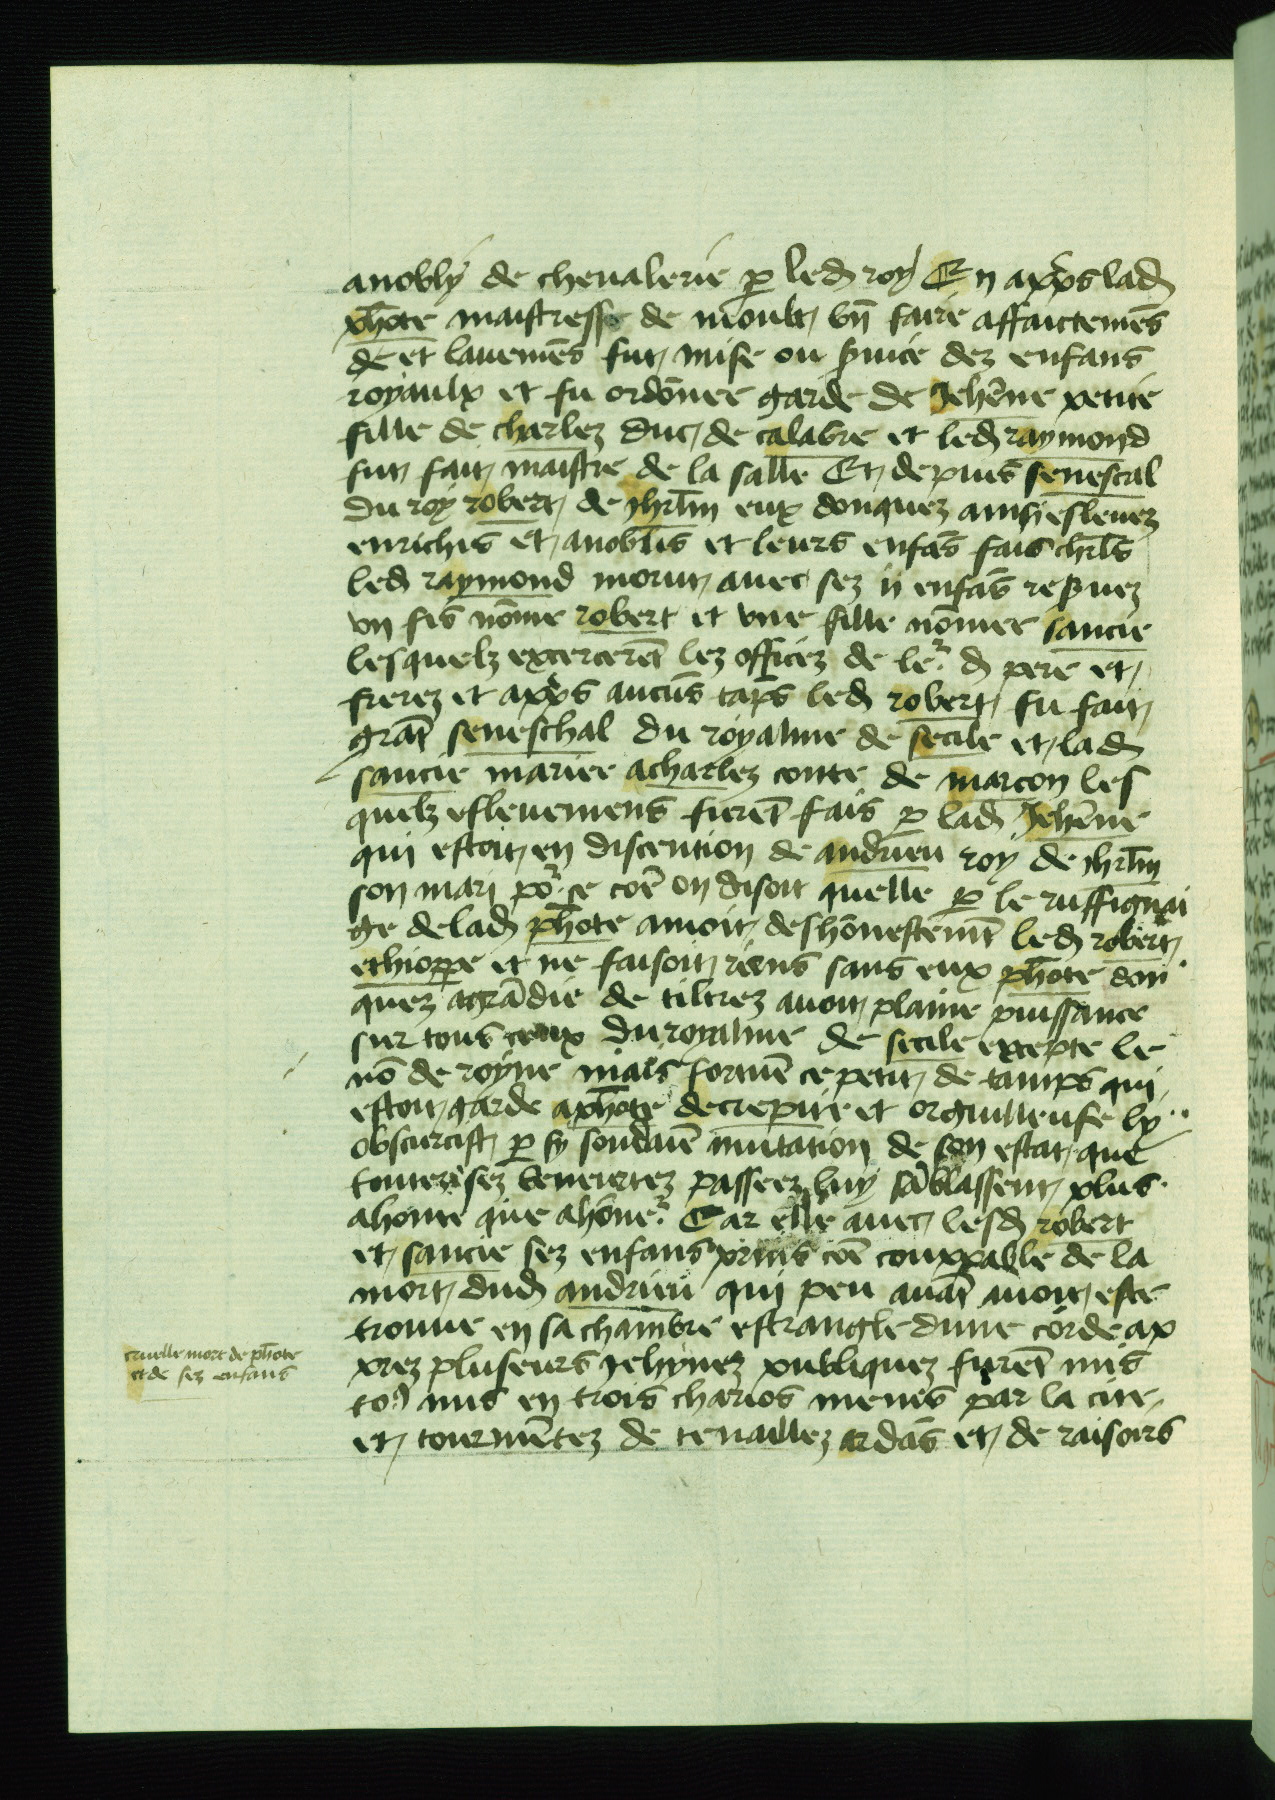 anobly de cheualerie p led roy En apps lad
phote maistresse de moult bn faire affaictemēs
de et lauemēs fut mise ou suice dez enfans
royaulx et fu ordōnee garde de Jehēne petite
fille de charlez duc de calabre et led raymond
fut fait maistre de la salle Et depuis senescal
du roy robert de jhrlm eux donquez ainsi esleuez
enrichis et anoblis et leurs enfās fais chlrs
led raymond morut auec sez ii enfās reseruez
vn fis nōme robert et vne fille nōmee sancie
lesquelz excercerēt lez officez de leʳ d pere et
frerez et apps aucūs tāps led robert fu fait
grāt seneschal du royalme de secile et lad
sancie mariee acharlez conte de marcon les
quelz esleuemens furēt fais p lad Jehēne
qui estoit en discention de andrieu roy de jhrlm
son mari poʳ ce coē on disoit quelle p le ruffignai
ge delad phote auoit deshōnestemēt led robert
ethioppe et ne faisoit riens sans eux phote don
quez agrādie de tiltrez auoit plaine puissance
sur tous ceux du royalme de secile excepte le
nō de royne mais fortune ce petit de tamps qui
estoit garde aphote decrepite et orguilleuse ly
obscurcist p sy soudaīe mutation de son estat que
toutez sez beneurtez passeez luy sāblassent plus
ahonte que ahōneʳ Car elle auec lesd robert
et sancie sez enfans prins coē couppable de la
mort dud andrieu qui peu auāt auoit este
trouue en sa chambre estrangle dune corde ap
prez pluseurs jehynez publiquez furēt mis
toꝰ nus en trois charios menes par la cite
et tourmētez de tenaillez ardās et de raisoirs
cruelle mort de phote
et de sez enfans